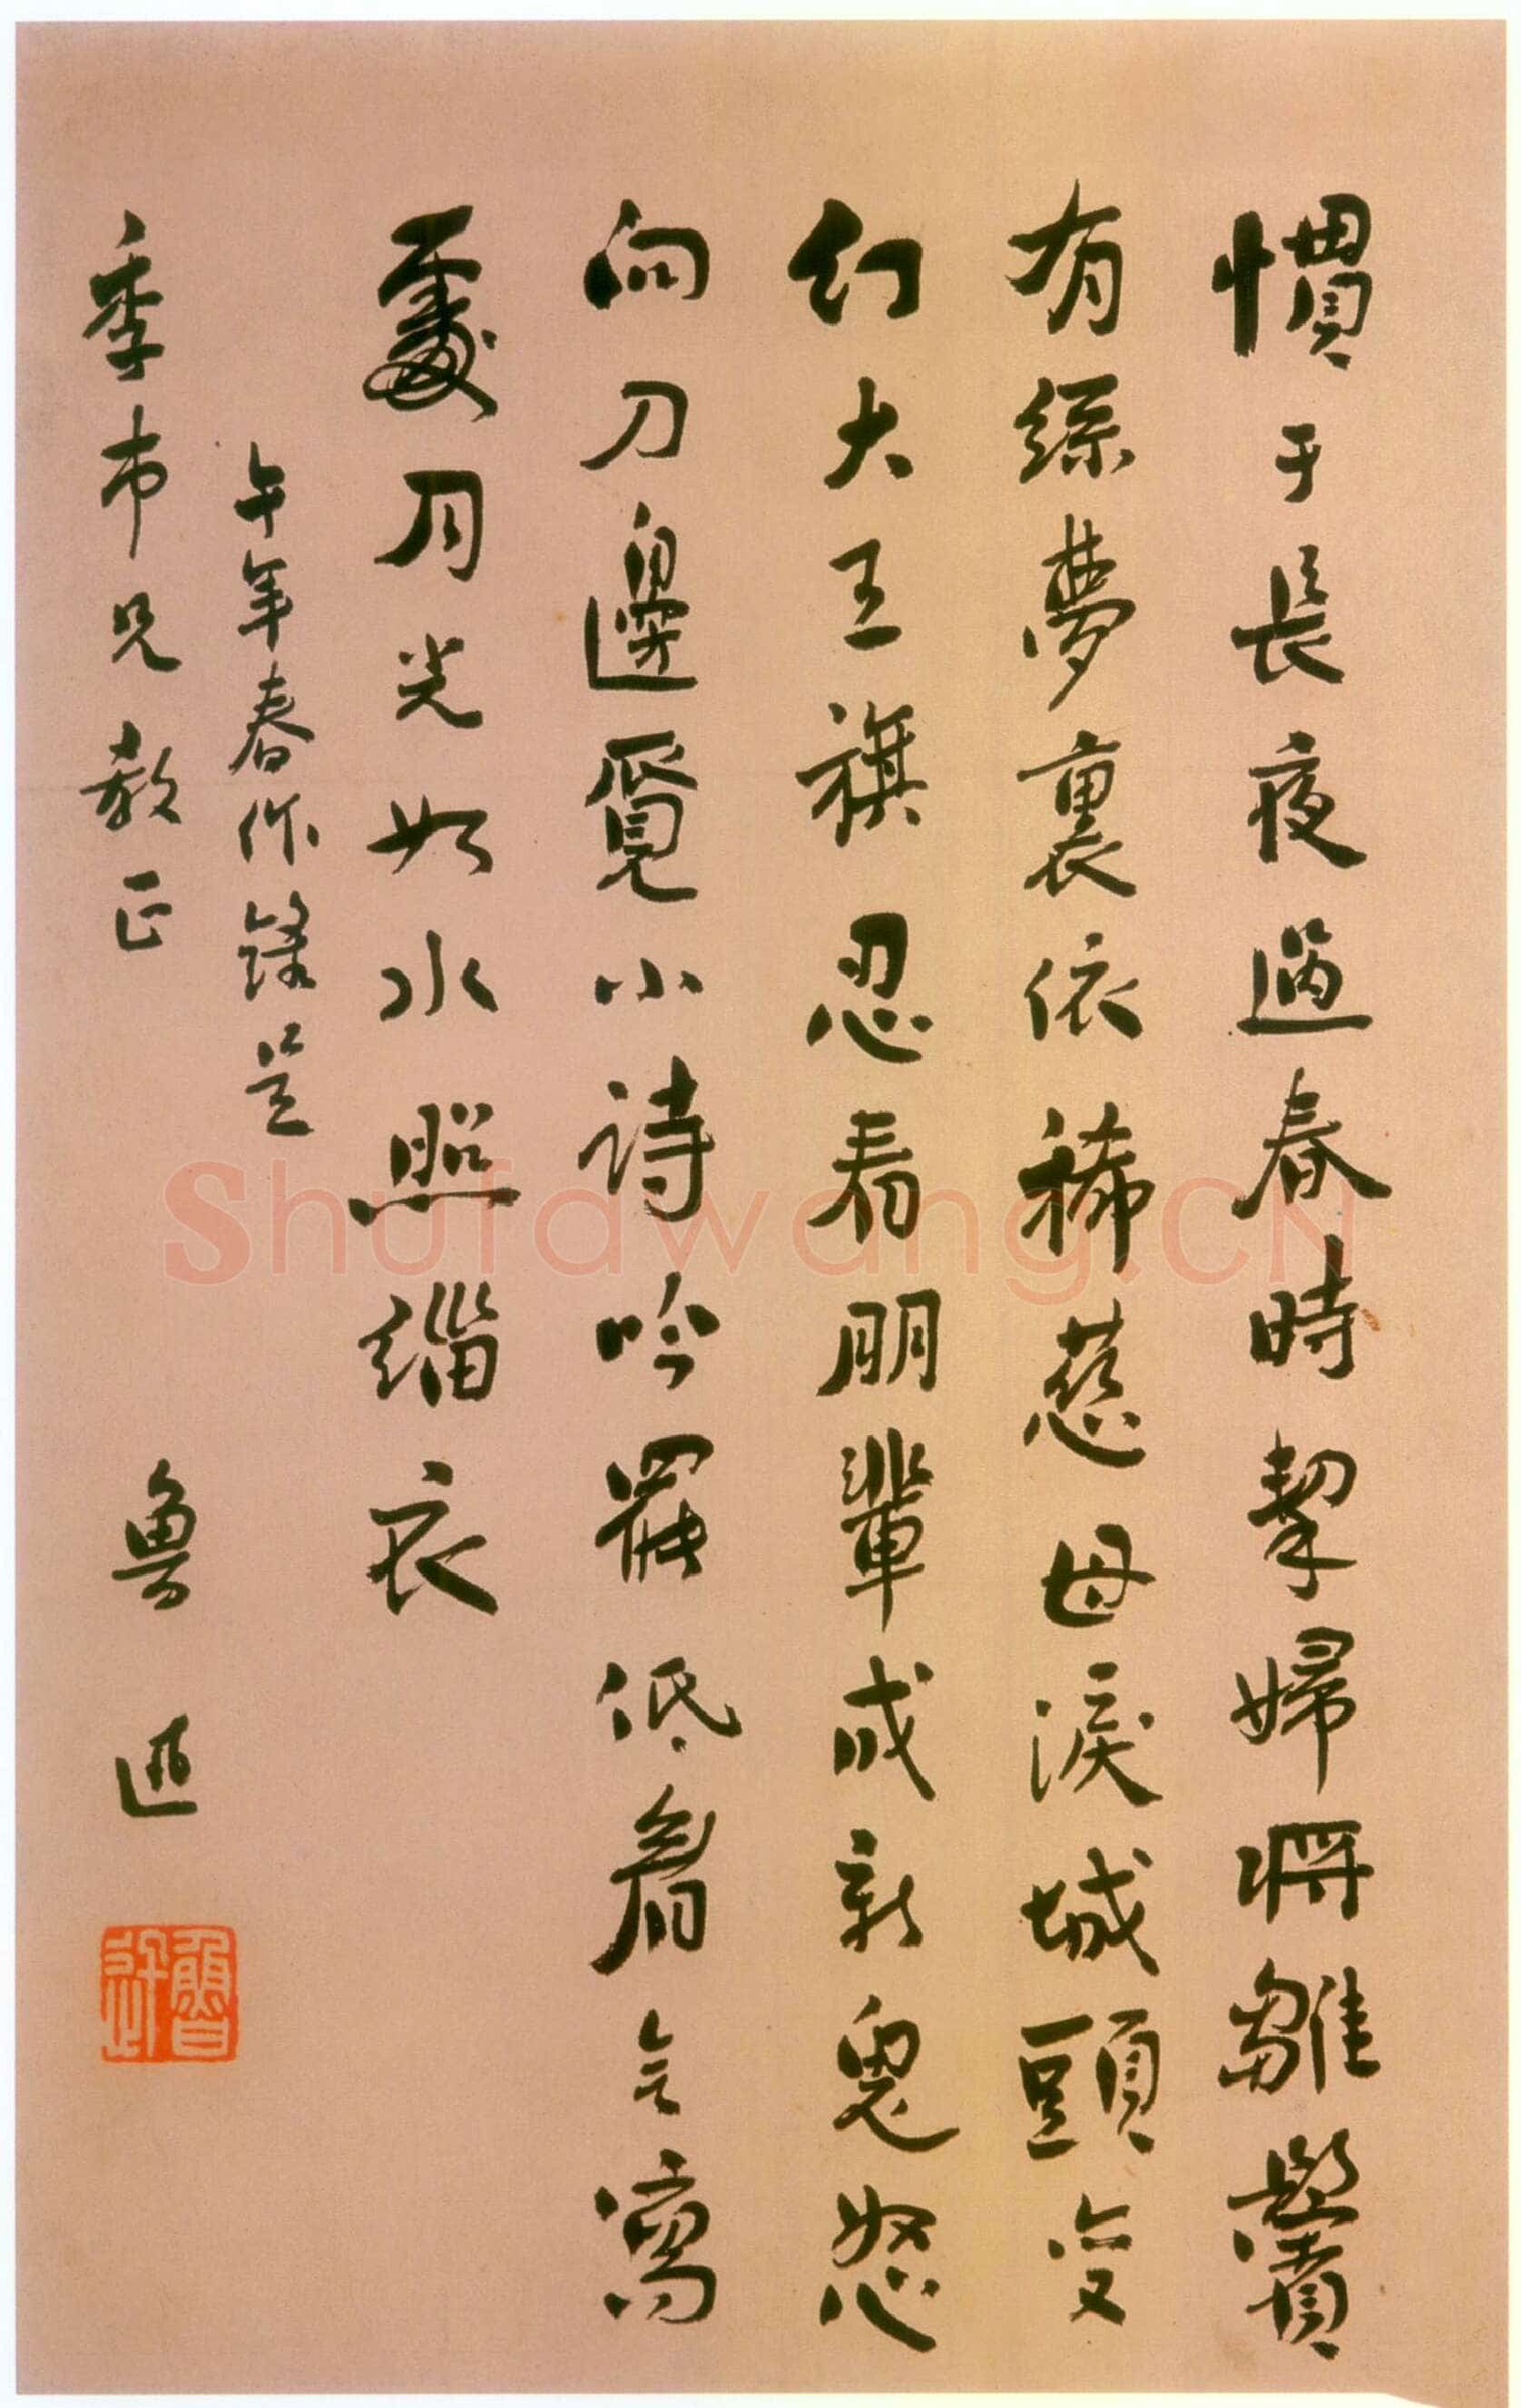 慣于長夜過春時挈婦將雛鬢
有絲夢裏依稀慈母淚城頭變
幻大王旗忍看朋輩成新鬼怒
向刀邊覓小詩吟罷低眉無寫
處月光如水照緇衣
午年春作錄呈
季巿兄教正
魯迅
魯迅
Shufawang.CN